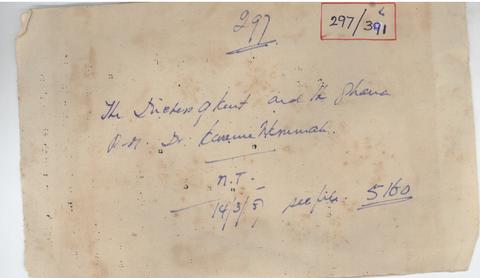 297
297/391
The Duchess of Kent and the Ghana
P.M. Dr. Kwame Nkrumah.
N.T.
14/3/57 see file. 5160